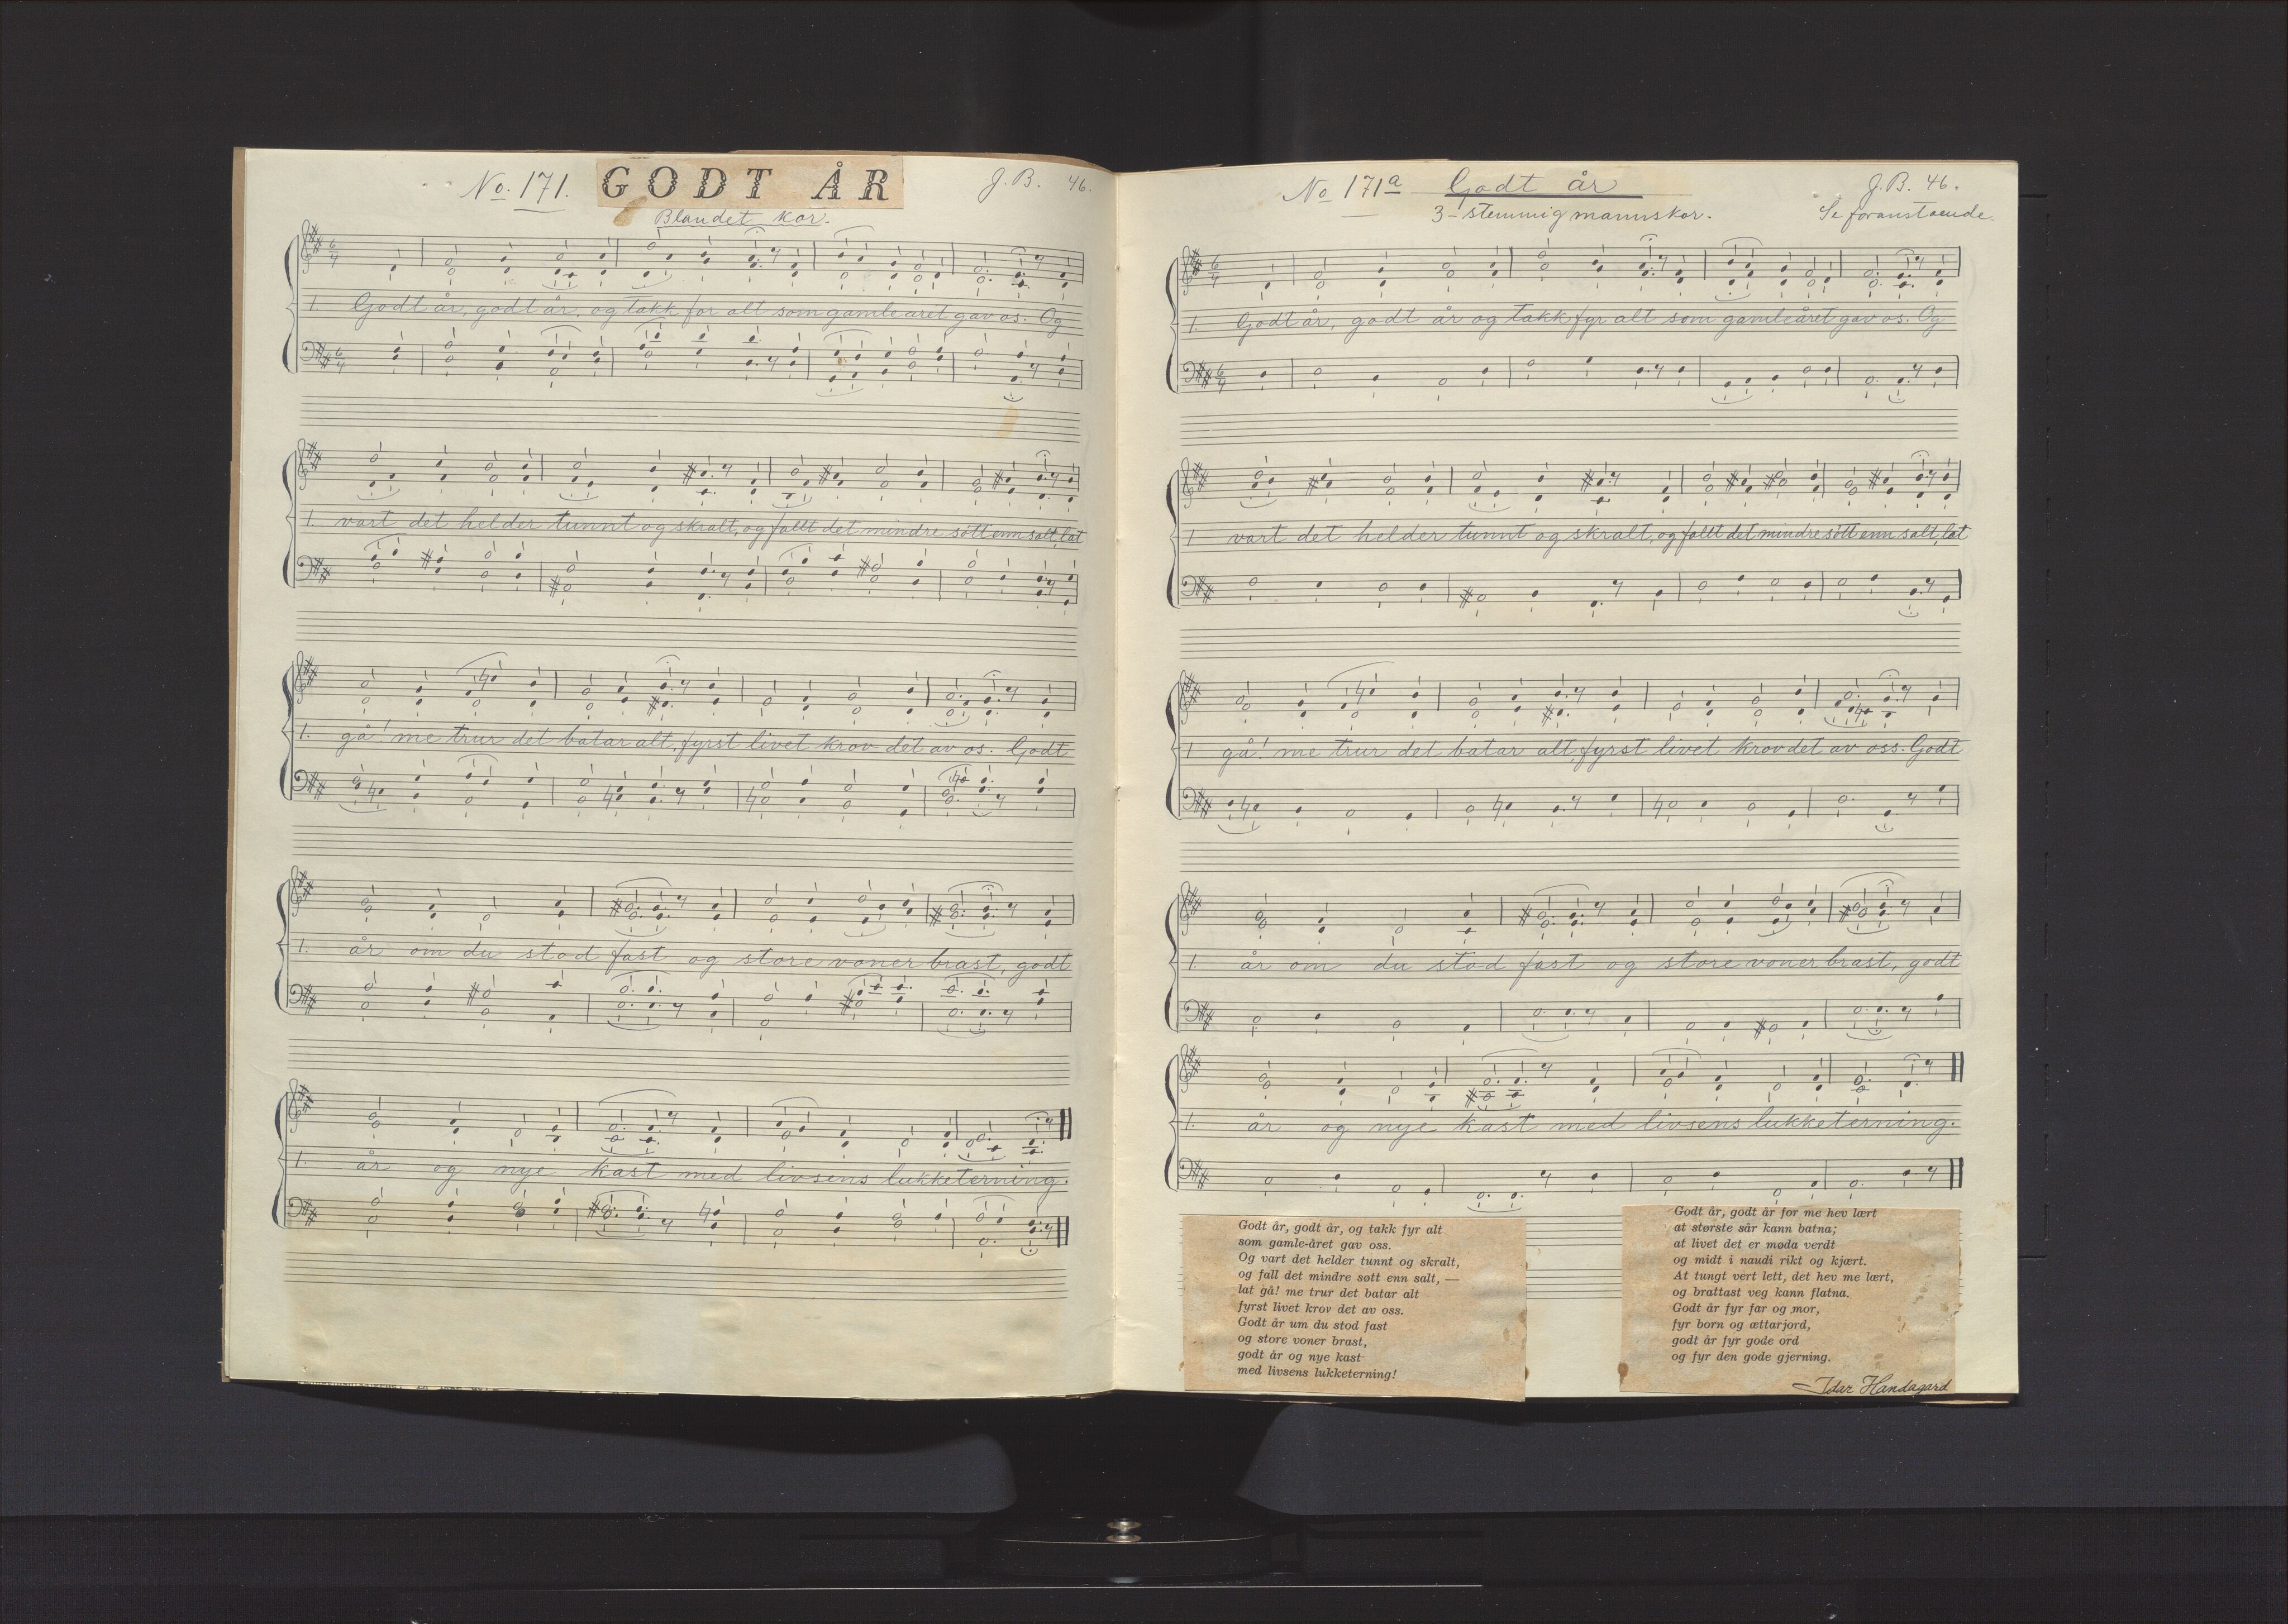 No. 171. GODT ÅR J.B. 46.
Blandet kor.
1. Godt år, godt år, og takk for alt som gamleåret gav os. Og
1. vart det helder tunnt og skralt, og fallt det mindre søtt enn salt, lat
1. gå! me trur det batar alt, fyrst livet krov det av os. Godt
1. år om du stod fast og store voner brast, godt
1. år og nye kast med livsens lukketerning.
No 171a Godt år J.B. 46.
3-stemmig mannskor. Se foranstaende.
1 Godt år, godt år og takk fyr alt som gamleåret gav os. Og
1 vart det helder tunnt og skralt, og fallt det mindre søtt enn salt, lat
1 gå! me trur det batar alt, fyrst livet krov det av oss. Godt
1. år om du stod fast og store voner brast, godt
1. år og nye kast med livsens lukketerning.
Godt år, godt år, og takk fyr alt
som gamle-året gav oss.
Og vart det helder tunnt og skralt,
og fall det mindre søtt enn salt, —
lat gå! me trur det batar alt
fyrst livet krov det av oss.
Godt år um du stod fast
og store voner brast,
godt år og nye kast
med livsens lukketerning!
Godt år, godt år for me hev lært
at største sår kann batna;
at livet det er møda verdt
og midt i naudi rikt og kjært.
At tungt vert lett, det hev me lært,
og brattast veg kann flatna.
Godt år fyr far og mor,
fyr born og ættarjord,
godt år fyr gode ord
og fyr den gode gjerning.
Idar Handagard